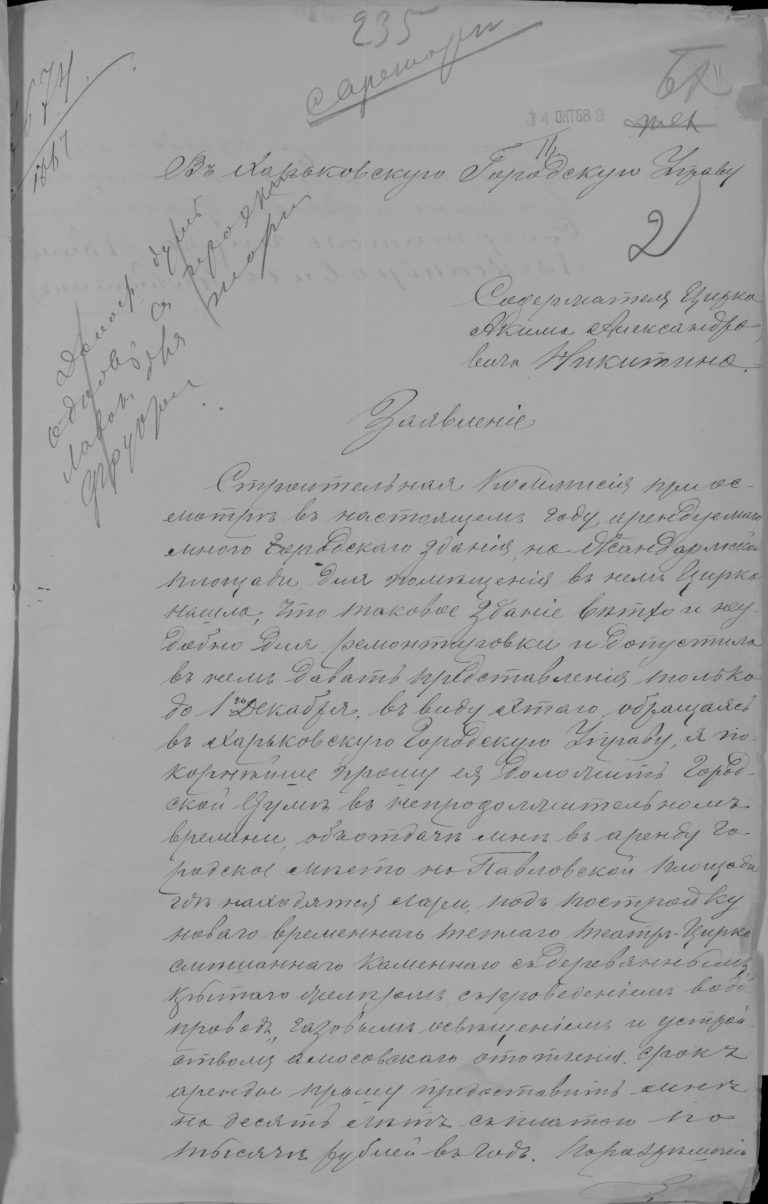 235
674
14 ОКТ 89
Въ Харьковскую Городскую Управу
2
Содержателя Цирка
Акима Александро
вича Никитина.
Заявленіе
Строительная Коммисія при ос-
мотрѣ въ настоящемъ году, арендуемаго
мною городского зданія, на Жандармской
площади, для помѣщенія въ немъ Цирка
нашла, что таковое зданіе ветхо и неу-
добно для ремонтировки и допустила
въ немъ давать представленія только
до 1го Декабря, въ виду этаго, обращаясь
въ Харьковскую Городскую Управу, я по-
корнѣйше прошу ея доложить Город-
ской Думѣ въ непродолжительномъ
времени, объ отдачѣ мнѣ въ аренду Го-
родское мѣсто на Павловской площади
гдѣ находятся лазни, подъ постройку
новаго временнаго теплаго театръ-Цирка
смѣшаннаго каменнаго съ деревяннымъ,
крытаго желѣзомъ, съ проведеніемъ водо
провода, газовымъ освѣщеніемъ и устрой
ствомъ амосовскаго отопленія. Срокъ
аренды прошу предоставить мнѣ
на десять лѣтъ съ платою по
тысячѣ рублей въ годъ.